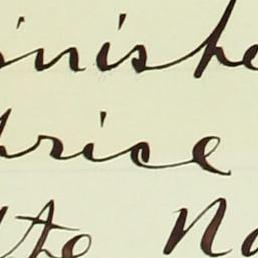 inishe
rise
the N